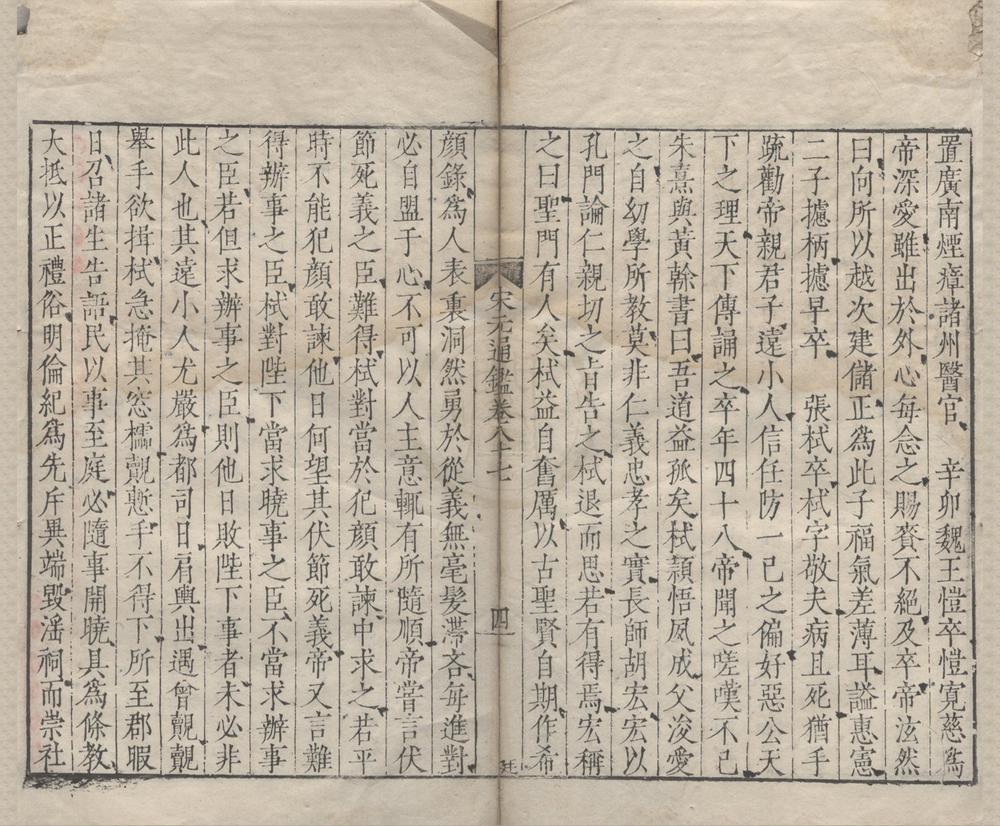 置廣南煙瘴諸州醫官　辛卯魏王愷卒愷寬慈爲
帝深愛雖出於外心每念之賜賚不絕及卒帝泫然
曰向所以越次建儲正爲此子福氣差薄耳謚惠憲
二子攄柄攄早卒　張栻卒栻字敬夫病且死猶手
疏勸帝親君子遠小人信任防一己之偏好惡公天
下之理天下傳誦之卒年四十八帝聞之嗟嘆不已
朱熹與黃榦書曰吾道益孤矣栻頴悟夙成父浚愛
之自幼學所教莫非仁義忠孝之實長師胡宏宏以
孔門論仁親切之旨告之栻退而思若有得焉宏稱
之曰聖門有人矣栻益自奮厲以古聖賢自期作希
宋元通鑑卷八十七
四
顔錄爲人表裏洞然勇於從義無毫髮滯吝每進對
必自盟于心不可以人主意輒有所隨順帝嘗言伏
節死義之臣難得栻對當於犯顔敢諫中求之若平
時不能犯顔敢諫他日何望其伏節死義帝又言難
得辦事之臣栻對陛下當求曉事之臣不當求辦事
之臣若但求辦事之臣則他日敗陛下事者未必非
此人也其遠小人尤嚴爲都司日肩輿出遇曾覿覿
舉手欲揖栻急掩其窓櫺覿慙手不得下所至郡暇
日召諸生告語民以事至庭必隨事開曉具爲條教
大抵以正禮俗明倫紀爲先斥異端毀淫祠而崇社